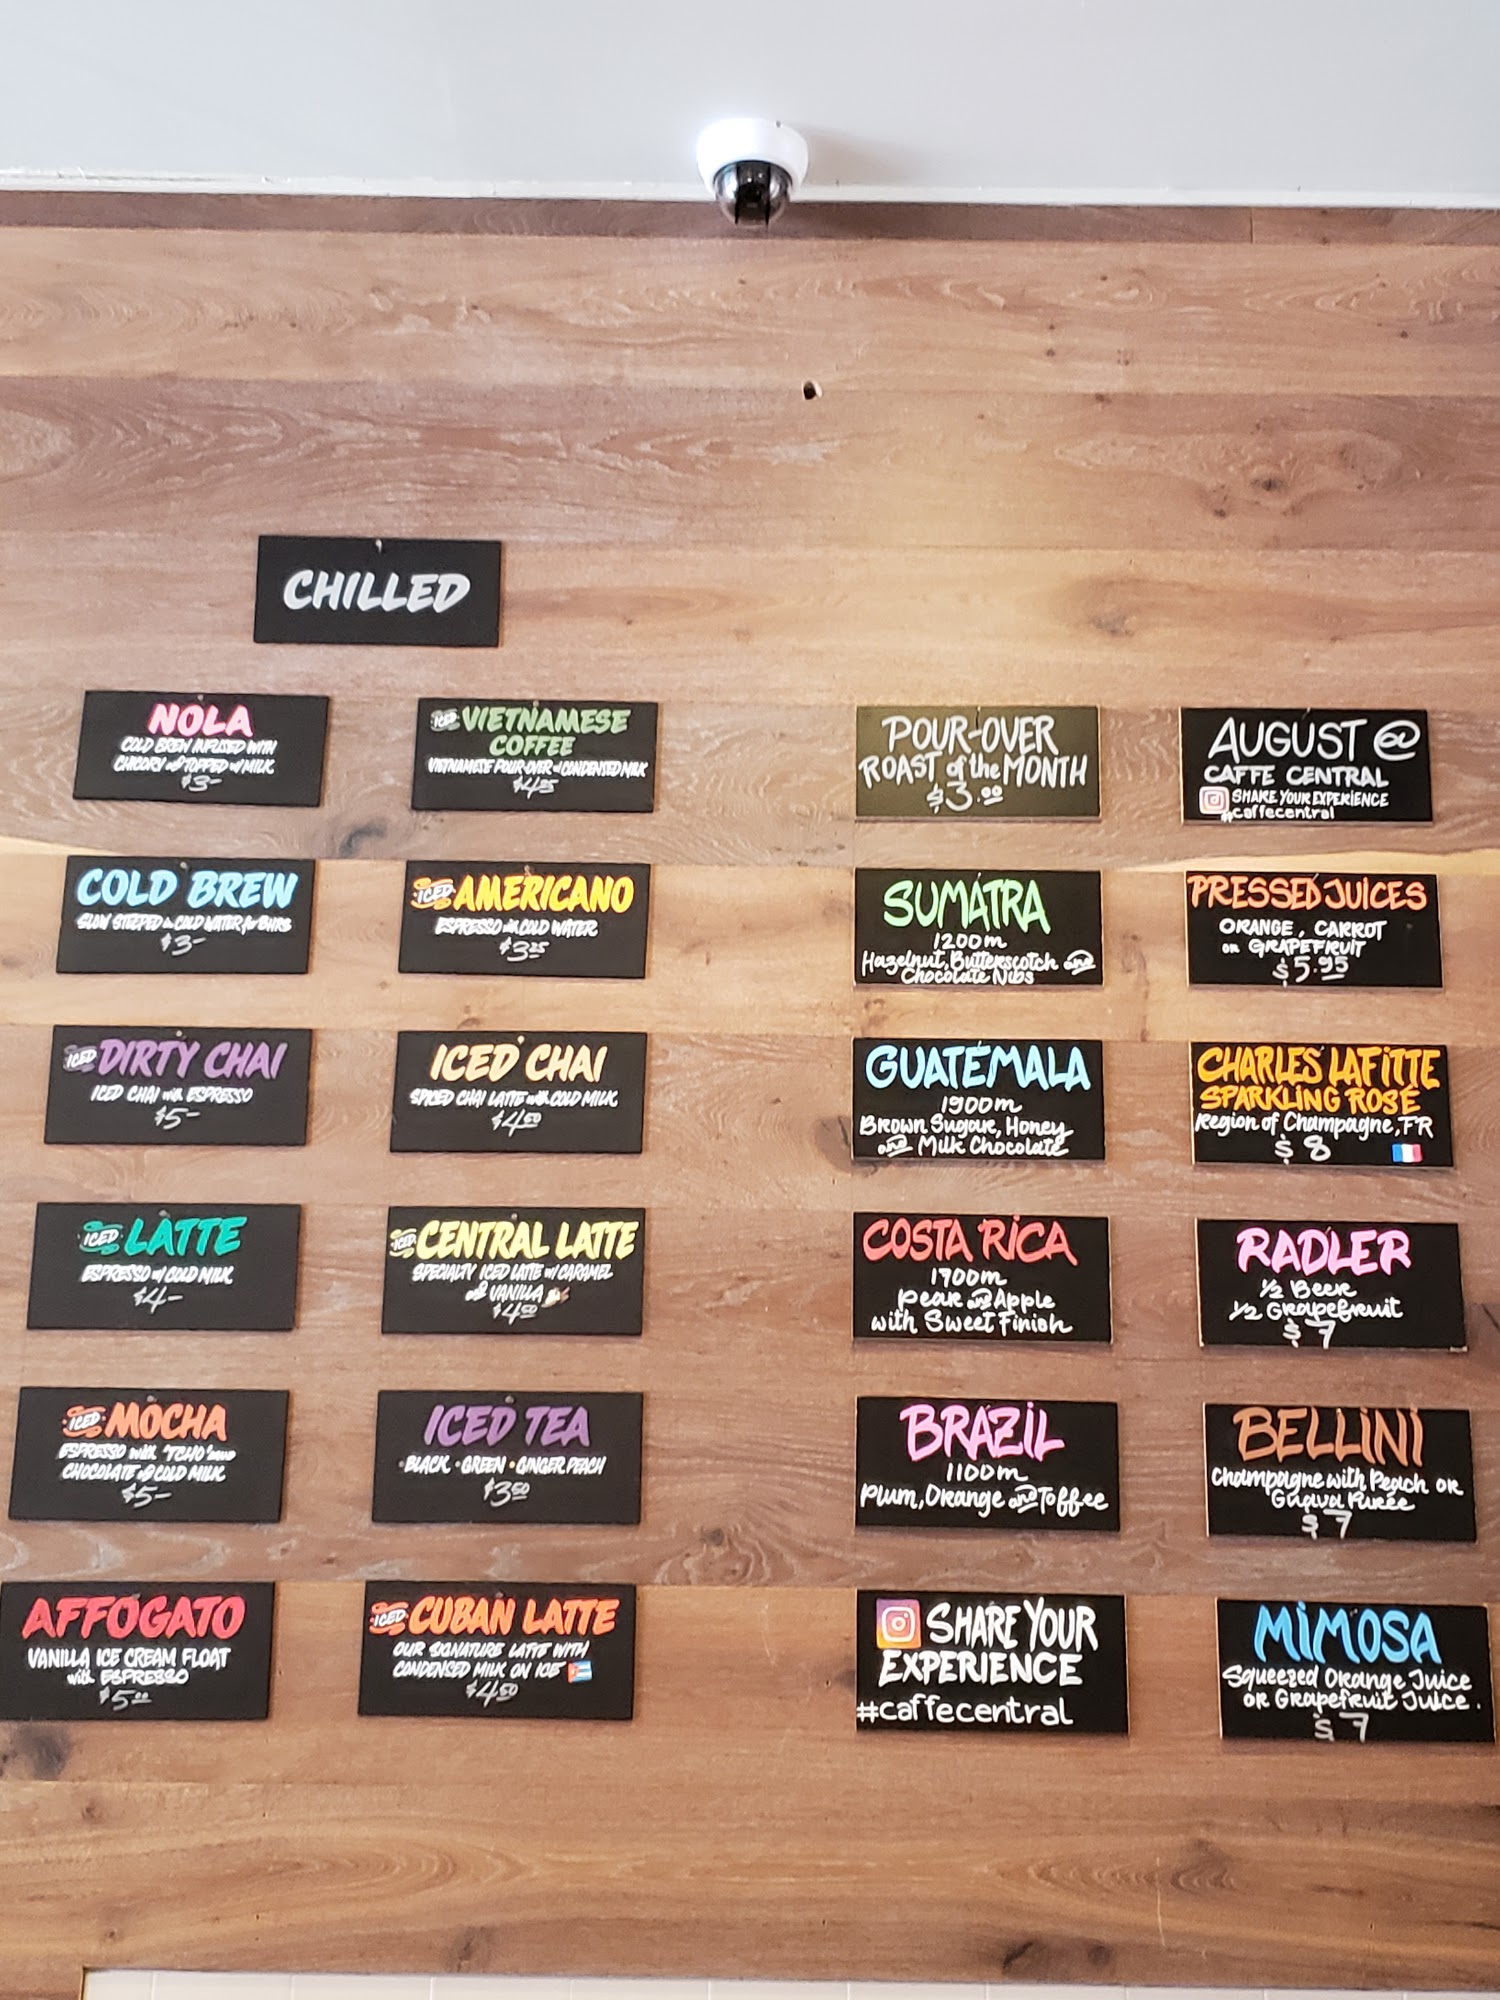 CHILLED
NOLA
COLD BREW INFUSED WITH
CHICORY and TOPPED w/ MILK
$3-
ICED VIETNAMESE
COFFEE
VIETNAMESE POUR-OVER w/ CONDENSED MILK
$4.25
COLD BREW
SLOW STEEPED in COLD WATER for 8HRS
$3-
ICED AMERICANO
ESPRESSO with COLD WATER
$3.25
ICED DIRTY CHAI
ICED CHAI with ESPRESSO
$5-
ICED CHAI
SPICED CHAI LATTE with COLD MILK
$4.50
ICED LATTE
ESPRESSO w/ COLD MILK
$4-
ICED CENTRAL LATTE
SPECIALTY ICED LATTE w/ CARAMEL
and VANILLA
$4.50
ICED MOCHA
ESPRESSO with "TCHO"
CHOCOLATE and COLD MILK
$5-
ICED TEA
BLACK • GREEN • GINGER PEACH
$3.50
AFFOGATO
VANILLA ICE CREAM FLOAT
with ESPRESSO
$5.00
ICED CUBAN LATTE
OUR SIGNATURE LATTE WITH
CONDENSED MILK ON ICE
$4.50
POUR-OVER
ROAST of the MONTH
$3.00
SUMATRA
1200m
Hazelnut, Butterscotch and
Chocolate Nibs
GUATEMALA
1900m
Brown Sugar, Honey
and Milk Chocolate
COSTA RICA
1700m
Pear and Apple
with Sweet Finish
BRAZIL
1100m
Plum, Orange and Toffee
SHARE YOUR
EXPERIENCE
#caffecentral
AUGUST @
CAFFE CENTRAL
SHARE YOUR EXPERIENCE
#caffecentral
PRESSED JUICES
ORANGE, CARROT
or GRAPEFRUIT
$5.95
CHARLES LAFITTE
SPARKLING ROSÉ
Region of Champagne, FR
$8
RADLER
1/2 Beer
1/2 Grapefruit
$7
BELLINI
Champagne with Peach or
Guava Purée
$7
MIMOSA
Squeezed Orange Juice
or Grapefruit Juice.
$7